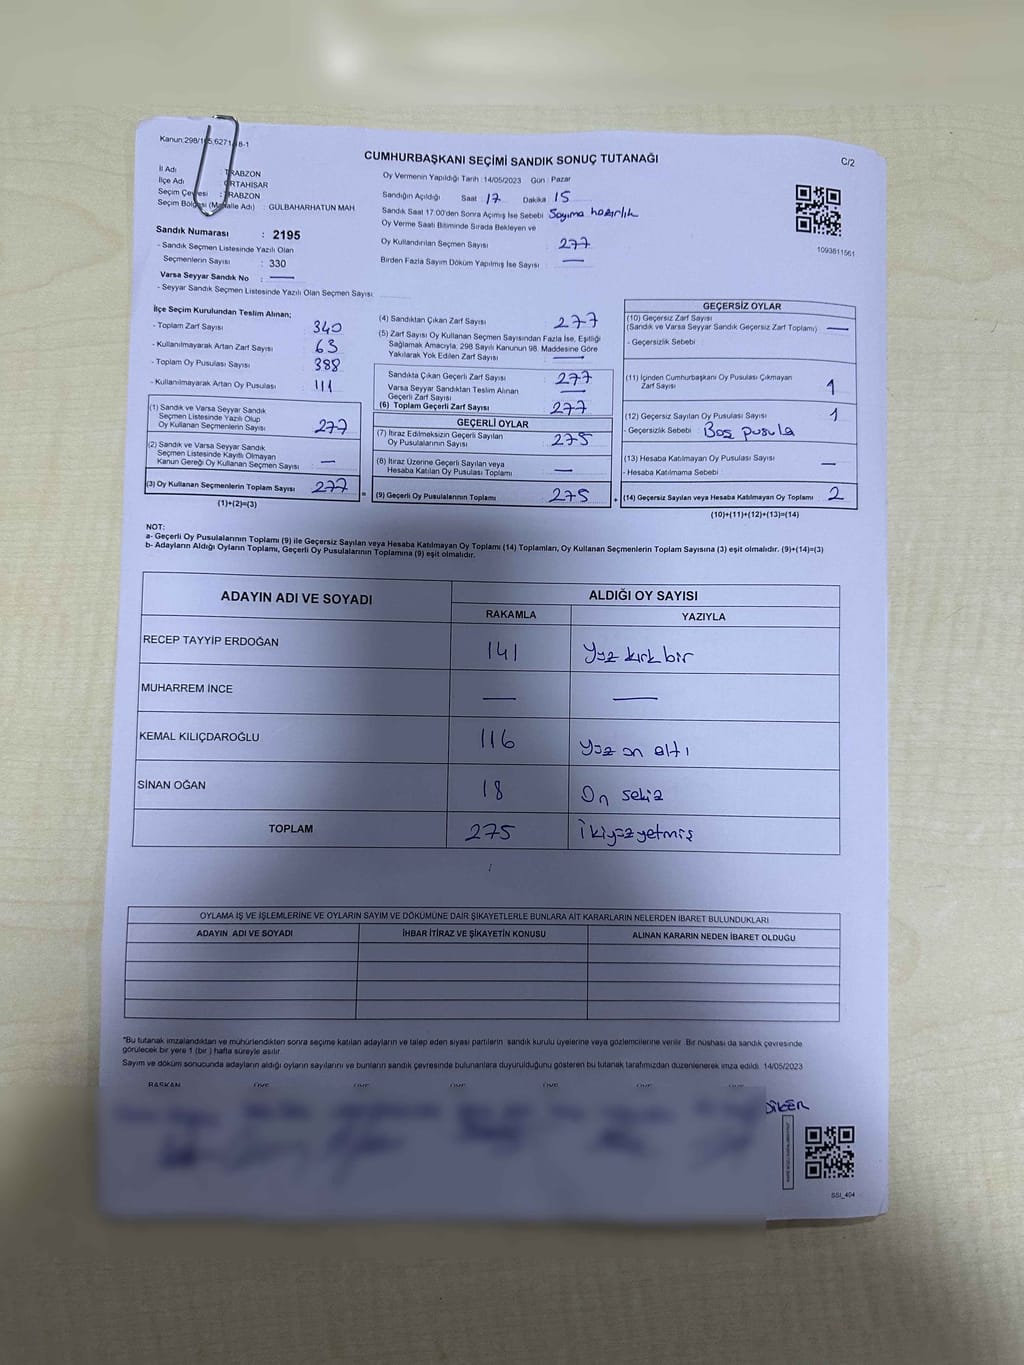 Kanun:298/105,6271/18-1
C/2
CUMHURBAŞKANI SEÇİMİ SANDIK SONUÇ TUTANAĞI
İl Adı : TRABZON
İlçe Adı : ORTAHİSAR
Seçim Çevresi : TRABZON
Seçim Bölgesi (Mahalle Adı) : GÜLBAHARHATUN MAH
Sandık Numarası : 2195
- Sandık Seçmen Listesinde Yazılı Olan
Seçmenlerin Sayısı : 330
Varsa Seyyar Sandık No : —
- Seyyar Sandık Seçmen Listesinde Yazılı Olan Seçmen Sayısı:
Oy Vermenin Yapıldığı Tarih : 14/05/2023 Gün : Pazar
Sandığın Açıldığı Saat : 17 Dakika : 15
Sandık Saat 17:00'den Sonra Açımış İse Sebebi Sayıma hazırlık
Oy Verme Saati Bitiminde Sırada Bekleyen ve
Oy Kullandırılan Seçmen Sayısı : 277
Birden Fazla Sayım Döküm Yapılmış İse Sayısı : —
1093811561
İlçe Seçim Kurulundan Teslim Alınan;
- Toplam Zarf Sayısı : 340
- Kullanılmayarak Artan Zarf Sayısı : 63
- Toplam Oy Pusulası Sayısı : 388
- Kullanılmayarak Artan Oy Pusulası : 111
(1) Sandık ve Varsa Seyyar Sandık
Seçmen Listesinde Yazılı Olup
Oy Kullanan Seçmenlerin Sayısı : 277
(2) Sandık ve Varsa Seyyar Sandık
Seçmen Listesinde Kayıtlı Olmayan
Kanun Gereği Oy Kullanan Seçmen Sayısı : —
(3) Oy Kullanan Seçmenlerin Toplam Sayısı : 277
(1)+(2)=(3)
(4) Sandıktan Çıkan Zarf Sayısı : 277
(5) Zarf Sayısı Oy Kullanan Seçmen Sayısından Fazla İse, Eşitliği
Sağlamak Amacıyla; 298 Sayılı Kanunun 98. Maddesine Göre
Yakılarak Yok Edilen Zarf Sayısı : —
Sandıkta Çıkan Geçerli Zarf Sayısı : 277
Varsa Seyyar Sandıktan Teslim Alınan
Geçerli Zarf Sayısı : —
(6) Toplam Geçerli Zarf Sayısı : 277
GEÇERLİ OYLAR
(7) İtiraz Edilmeksizin Geçerli Sayılan
Oy Pusulalarının Sayısı : 275
(8) İtiraz Üzerine Geçerli Sayılan veya
Hesaba Katılan Oy Pusulası Toplamı : —
= (9) Geçerli Oy Pusulalarının Toplamı : 275
GEÇERSİZ OYLAR
(10) Geçersiz Zarf Sayısı
(Sandık ve Varsa Seyyar Sandık Geçersiz Zarf Toplamı) : —
- Geçersizlik Sebebi :
(11) İçinden Cumhurbaşkanı Oy Pusulası Çıkmayan
Zarf Sayısı : 1
(12) Geçersiz Sayılan Oy Pusulası Sayısı : 1
- Geçersizlik Sebebi : Boş pusula
(13) Hesaba Katılmayan Oy Pusulası Sayısı : —
- Hesaba Katılmama Sebebi :
+ (14) Geçersiz Sayılan veya Hesaba Katılmayan Oy Toplamı : 2
(10)+(11)+(12)+(13)=(14)
NOT:
a- Geçerli Oy Pusulalarının Toplamı (9) ile Geçersiz Sayılan veya Hesaba Katılmayan Oy Toplamı (14) Toplamları, Oy Kullanan Seçmenlerin Toplam Sayısına (3) eşit olmalıdır. (9)+(14)=(3)
b- Adayların Aldığı Oyların Toplamı, Geçerli Oy Pusulalarının Toplamına (9) eşit olmalıdır.
ADAYIN ADI VE SOYADI ALDIĞI OY SAYISI
RAKAMLA YAZIYLA
RECEP TAYYİP ERDOĞAN 141 Yüz kırk bir
MUHARREM İNCE — —
KEMAL KILIÇDAROĞLU 116 Yüz on altı
SİNAN OĞAN 18 On sekiz
TOPLAM 275 İkiyüzyetmiş
OYLAMA İŞ VE İŞLEMLERİNE VE OYLARIN SAYIM VE DÖKÜMÜNE DAİR ŞİKAYETLERLE BUNLARA AİT KARARLARIN NELERDEN İBARET BULUNDUKLARI
ADAYIN ADI VE SOYADI İHBAR İTİRAZ VE ŞİKAYETİN KONUSU ALINAN KARARIN NEDEN İBARET OLDUĞU
*Bu tutanak imzalandıktan ve mühürlendikten sonra seçime katılan adayların ve talep eden siyasi partilerin sandık kurulu üyelerine veya gözlemcilerine verilir. Bir nüshası da sandık çevresinde
görülecek bir yere 1 (bir) hafta süreyle asılır.
Sayım ve döküm sonucunda adayların aldığı oyların sayılarını ve bunların sandık çevresinde bulunanlara duyurulduğunu gösteren bu tutanak tarafımızdan düzenlenerek imza edildi. 14/05/2023
BAŞKAN ÜYE ÜYE ÜYE ÜYE ÜYE ÜYE
SSI_404